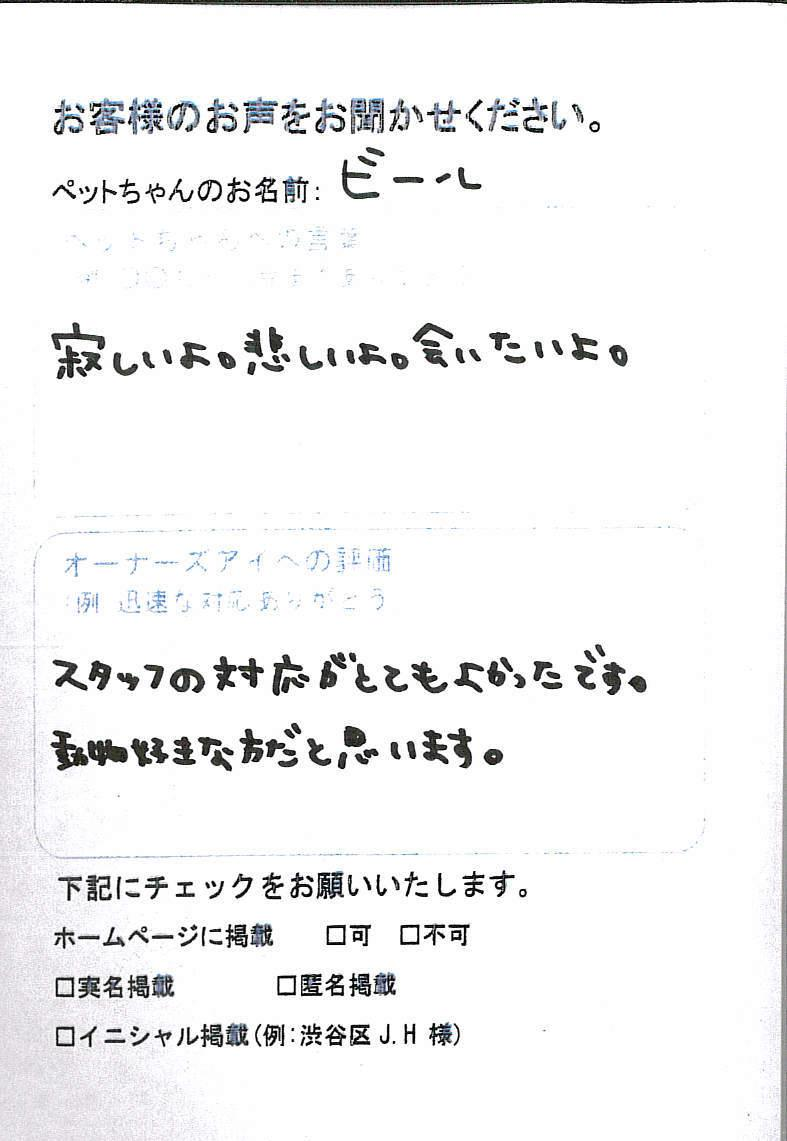 お客様のお声をお聞かせください。
ペットちゃんのお名前: ビール
ペットちゃんへの言葉
寂しいよ。悲しいよ。会いたいよ。
オーナーズアイへの評価
例 迅速な対応ありがとう
スタッフの対応がとてもよかったです。
動物好きな方だと思います。
下記にチェックをお願いいたします。
ホームページに掲載 □可 □不可
□実名掲載 □匿名掲載
□イニシャル掲載(例:渋谷区 J.H 様)